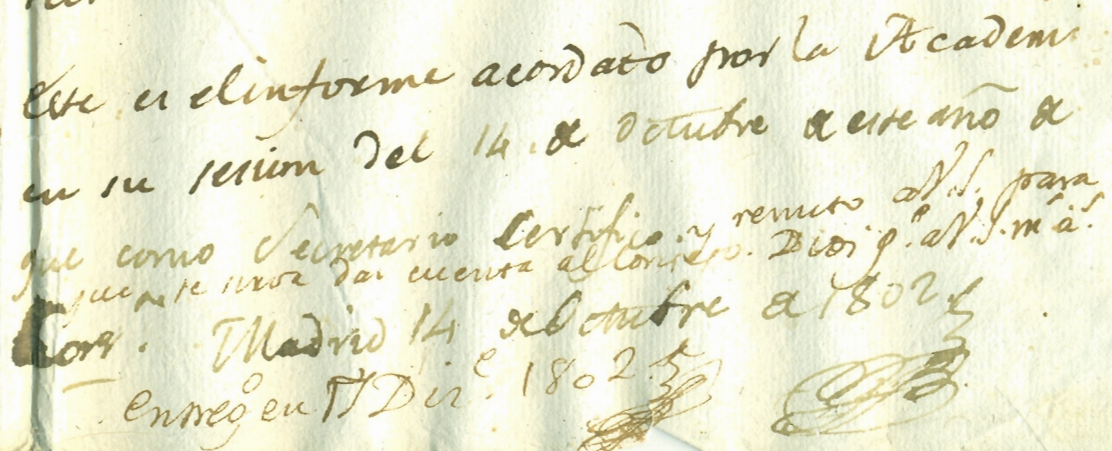 Este es el informe acordado por la Academi
en su sesion del 14 de Octubre de este año de
que como Secretario Certifico y remito a V.S. para
que se sirva dar cuenta al Consejo. Dios g.e a V.S. m.s a.s
Madrid 14 de Octubre de 1802
entregó en 17 Dic.e 1802